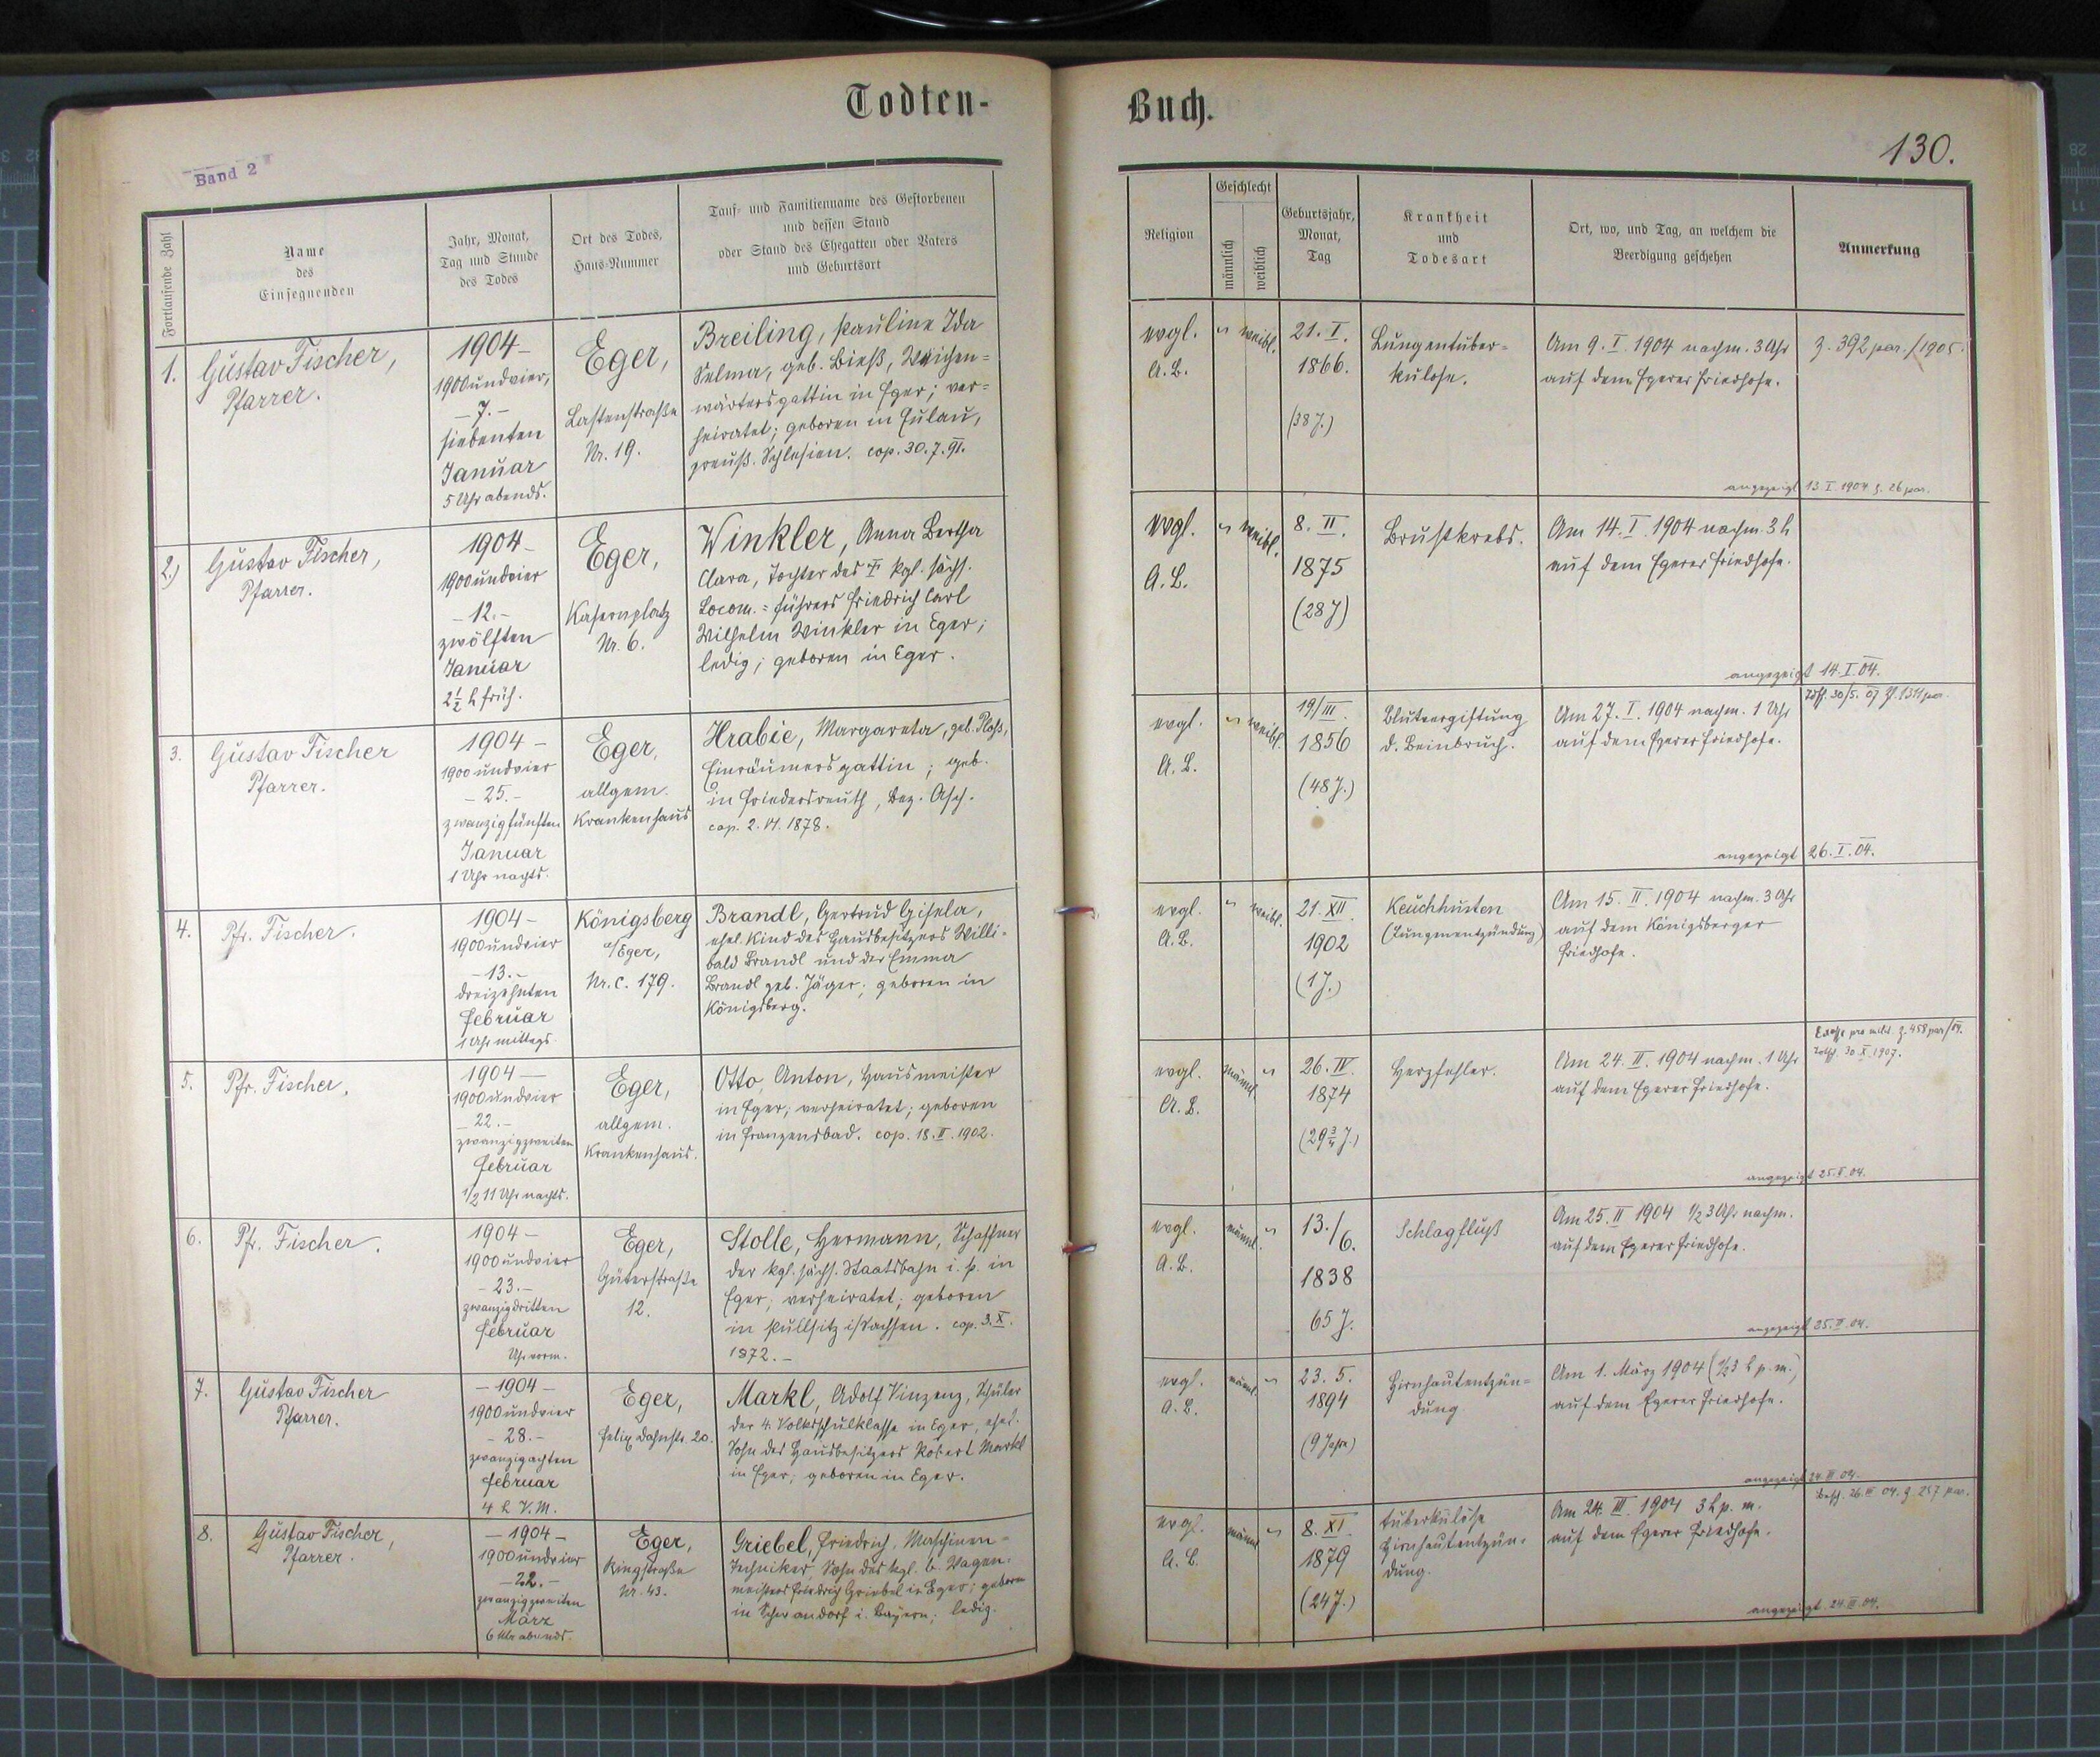 Todten-
Buch.
130.
Band 2
Fortlaufende Zahl
Name
des
Einsegnenden
Jahr, Monat,
Tag und Stunde
des Todes
Ort des Todes,
Haus-Nummer
Tauf- und Familienname des Gestorbenen
und dessen Stand
oder Stand des Ehegatten oder Vaters
und Geburtsort
Religion
Geschlecht
männlich
weiblich
Geburtsjahr,
Monat,
Tag
Krankheit
und
Todesart
Ort, wo, und Tag, an welchem die
Beerdigung geschehen
Anmerkung
1.
Gustav Fischer,
Pfarrer.
1904-
1900undvier,
- 7. -
siebenten
Januar
5 Uhr abends.
Eger,
Lastenstraße
Nr. 19.
Breiling, Pauline Ida
Selma, geb. Bieß, Weichen=
wärtersgattin in Eger; ver=
heiratet; geboren in Eulau,
preuß. Schlesien. cop. 30.7.91.
evgl.
A.B.
" weibl.
21. I.
1866.
(38 J.)
Lungentuber=
kulose.
Am 9. I. 1904 nachm. 3 Uhr
auf dem Egerer Friedhofe.
Z. 392 par./1905.
angezeigt 13. I. 1904 Z. 26 par.
2.)
Gustav Fischer,
Pfarrer.
1904-
1900undvier
- 12. -
zwölften
Januar
2½ h früh.
Eger,
Kasernplatz
Nr. 6.
Winkler, Anna Bertha
Clara, Tochter des Kgl. sächs.
Locom.=führers Friedrich Carl
Wilhelm Winkler in Eger;
ledig; geboren in Eger.
evgl.
A.B.
" weibl.
8. II.
1875
(28 J)
Brustkrebs.
Am 14. I. 1904 nachm. 3 h
auf dem Egerer Friedhofe.
angezeigt 14. I. 04.
3.
Gustav Fischer
Pfarrer.
1904-
1900undvier
- 25. -
zwanzigfünften
Januar
1 Uhr nachts.
Eger,
allgem.
Krankenhaus
Hrabie, Margareta, geb. Ploß,
Einräumersgattin; geb.
in Friedersreuth, Bez. Asch.
cop. 2. VI. 1878.
evgl.
A.B.
" weibl.
19/III.
1856
(48 J.)
Blutvergiftung
d. Beinbruch.
Am 27. I. 1904 nachm. 1 Uhr
auf dem Egerer Friedhofe.
30/5. 07 1311 par.
angezeigt 26. I. 04.
4.
Pfr. Fischer.
1904-
1900undvier
- 13. -
dreizehnten
Februar
1 Uhr mittags.
Königsberg
a/Eger,
Nr. C. 179.
Brandl, Gertrud Gisela,
ehel. Kind des Hausbesitzers Willi=
bald Brandl und der Emma
Brandl geb. Jäger; geboren in
Königsberg.
evgl.
A.B.
" weibl.
21. XII.
1902
(1 J.)
Keuchhusten
(Lungenentzündung)
Am 15. II. 1904 nachm. 3 Uhr
auf dem Königsberger
Friedhofe.
5.
Pfr. Fischer.
1904-
1900undvier
- 22. -
zwanzigzweiten
Februar
1/2 11 Uhr nachts.
Eger,
allgem.
Krankenhaus.
Otto, Anton, Hausmeister
in Eger; verheiratet; geboren
in Franzensbad. cop. 18. II. 1902.
evgl.
A.B.
männl. "
26. IV.
1874
(29¾ J.)
Herzfehler.
Am 24. II. 1904 nachm. 1 Uhr
auf dem Egerer Friedhofe.
pro milit. Z. 458 par/04.
30. X. 1907.
angezeigt 25. II. 04.
6.
Pfr. Fischer.
1904-
1900undvier
- 23. -
zwanzigdritten
Februar
Uhr vorm.
Eger,
Güterstraße
12.
Stolle, Hermann, Schaffner
der kgl. sächs. Staatsbahn i. P. in
Eger; verheiratet; geboren
in Pullsitz i/Sachsen. cop. 3. X.
1872. -
evgl.
A.B.
männl. "
13./6.
1838
65 J.
Schlagfluß
Am 25. II 1904 1/2 3 Uhr nachm.
auf dem Egerer Friedhofe.
angezeigt 25. II. 04.
7.
Gustav Fischer
Pfarrer.
- 1904 -
1900undvier
- 28. -
zwanzigachten
Februar
4 h V.M.
Eger,
Felix Dahnstr. 20.
Markl, Adolf Vinzenz, Schüler
der 4. Volksschulklasse in Eger, ehel.
Sohn des Hausbesitzers Robert Markl
in Eger; geboren in Eger.
evgl.
A.B.
männl. "
23. 5.
1894
(9 Jahre)
Hirnhautentzün=
dung.
Am 1. März 1904 (1/2 3 h p.m.)
auf dem Egerer Friedhofe.
angezeigt 24. III. 04.
8.
Gustav Fischer,
Pfarrer.
- 1904 -
1900undvier
- 22. -
zwanzigzweiten
März
6 Uhr abends.
Eger,
Ringstraße
Nr. 43.
Griebel, Friedrich, Maschinen=
Techniker, Sohn des kgl. b. Wagen=
meisters Friedrich Griebel in Eger; geboren
in Schwandorf i. Bayern; ledig.
evgl.
A.B.
männl. "
8. XI.
1879
(24 J.)
tuberkulöse
Hirnhautentzün=
dung.
Am 24. III. 1904 3 h p.m.
auf dem Egerer Friedhofe.
26. III 04. Z. 257 par.
angezeigt 24. III. 04.